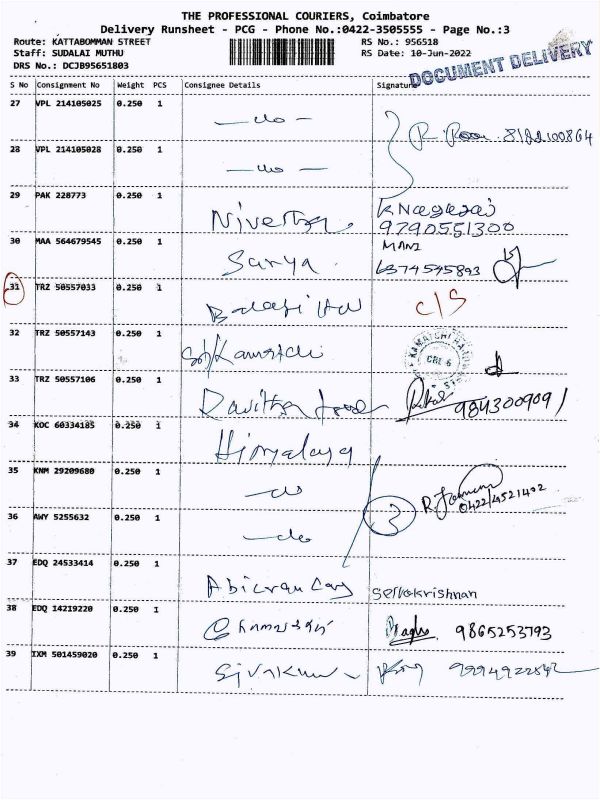 THE PROFESSIONAL COURIERS, Coimbatore
Delivery Runsheet - PCG - Phone No.:0422-3505555 - Page No.:3
Route: KATTABOMMAN STREET RS No.: 956518
Staff: SUDALAI MUTHU RS Date: 10-Jun-2022
DRS No.: DCJB95651803 DOCUMENT DELIVERY
S No Consignment No Weight PCS Consignee Details Signature
27 VPL 214105025 0.250 1
— do —
28 VPL 214105028 0.250 1
— do —
29 PAK 228773 0.250 1
9790551300
30 MAA 564679545 0.250 1 MANI
Surya
31 TRZ 50557033 0.250 1 C/S
Balaji
32 TRZ 50557143 0.250 1
33 TRZ 50557106 0.250 1
9843009091
34 KOC 60334185 0.250 1
Himalaya
35 KNM 29209680 0.250 1
— do
0422/4521402
36 AWY 5255632 0.250 1 3
— do
37 EDQ 24533414 0.250 1
Sellokrishnan
38 EDQ 14219220 0.250 1
9865253793
39 IXM 501459020 0.250 1
Sivakum